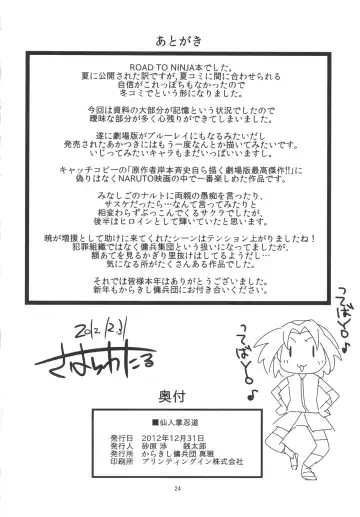 あとがき
ROAD TO NINJA本でした。
夏に公開された訳ですが、夏コミに間に合わせられる
自信がこれっぽちもなかったので
冬コミでという形になりました。
今回は資料の大部分が記憶という状況でしたので
曖昧な部分が多く心残りができてしまいました。
遂に劇場版がブルーレイにもなるみたいだし
発売されたあかつきにはもう一度なんとか描いてみたいです。
いじってみたいキャラもまだいっぱいいますし。
キャッチコピーの「原作者岸本斉史自ら描く劇場版最高傑作!!」に
偽りはなくNARUTO映画の中で一番楽しめた作品です。
みなしごのナルトに両親の愚痴を言ったり、
サスケだったら…なんて言ってみたりと
相変わらずぶっこんでくるサクラでしたが、
後半はヒロインとして輝いていたと思います。
暁が増援として助けに来てくれたシーンはテンション上がりましたね!
犯罪組織ではなく傭兵集団という扱いになってましたが、
額あてを見るかぎり里抜けはしてるようだし…
気になる所がたくさんある作品でした。
それでは皆様本年はありがとうございました。
新年もからきし傭兵団にお付き合いください。
2012.12.31
さはらわたる
ってばよ
ってばよ
奥付
■仙人掌忍道
発行日 2012年12月31日
発行人 砂原 渉 銭太郎
発行所 からきし傭兵団 真雅
印刷所 プリンティングイン株式会社
24